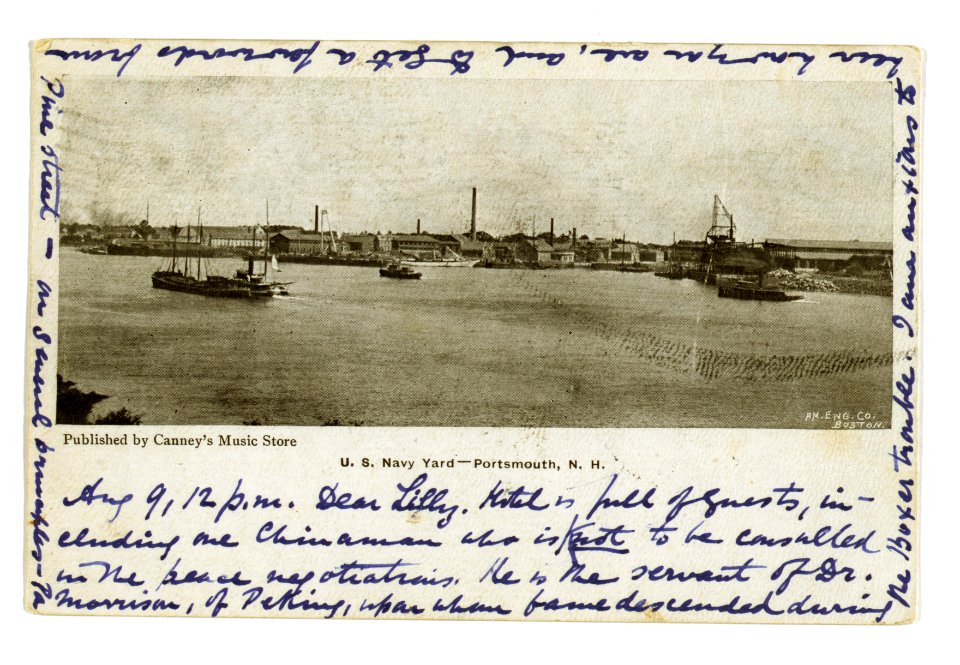 AM. ENG. CO.
BOSTON.
Published by Canney's Music Store
U. S. Navy Yard—Portsmouth, N. H.
Aug 9, 12 p.m. Dear Lilly. Hotel is full of guests, in-
cluding one Chinaman who is not to be consulted
in the peace negotiations. He is the servant of Dr.
Morrison, of Peking, upon whom fame descended during
the Boxer trouble. I am anxious to
hear how you are, and to get a forwards from
Pine street — on general principles — Pa